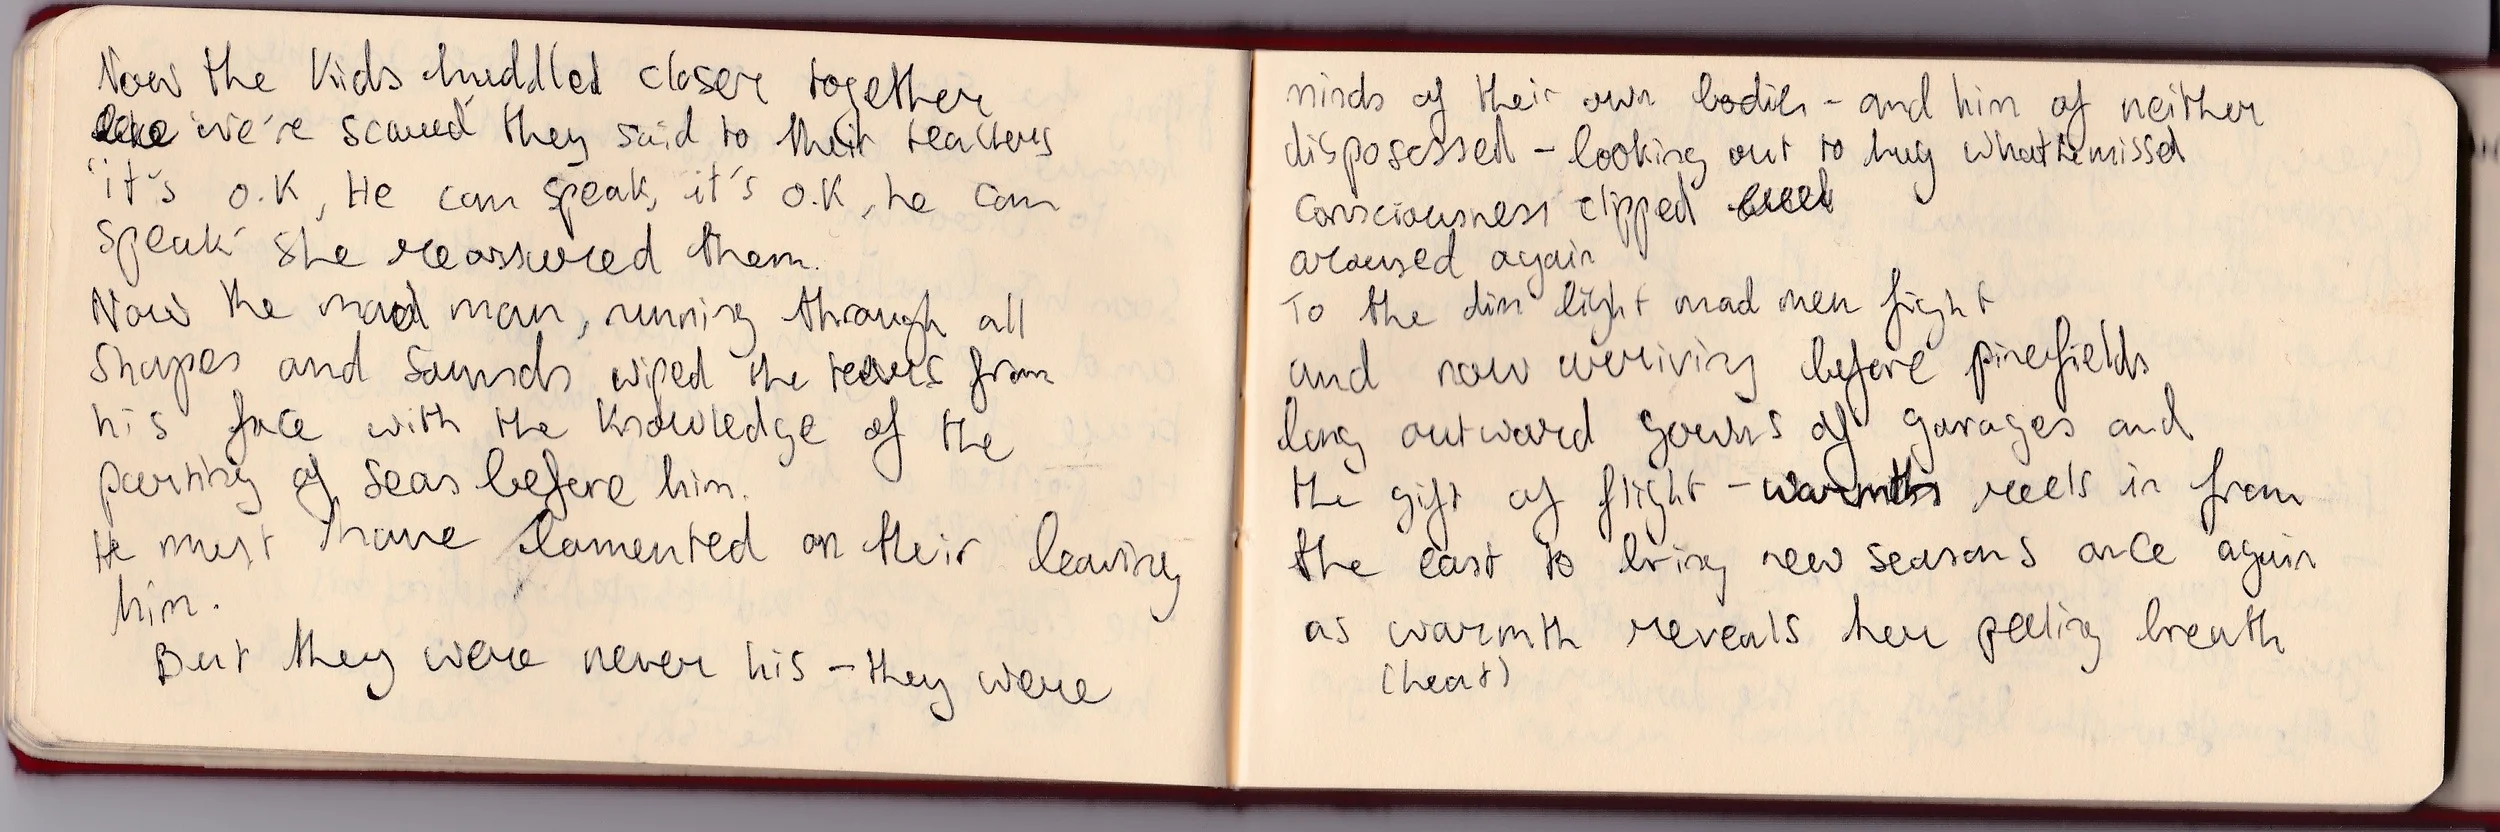 Now the kids huddled closer together
like 'we're scared' they said to their teachers
'it's o.k, He can speak, it's o.k, he can
speak' she reassured them.
Now the mad man, running through all
shapes and sounds wiped the tears from
his face with the knowledge of the
parting of seas before him.
He must have lamented on their leaving
him.
But they were never his - they were
minds of their own bodies - and him of neither
disposessed - looking out to hug what he missed
consciousness clipped
aroused again
To the dim light mad men fight
and now arriving before pinefields
long outward gowns of garages and
the gift of flight - warmth reels in from
the east to bring new seasons once again
as warmth reveals her peeling breath
(heat)